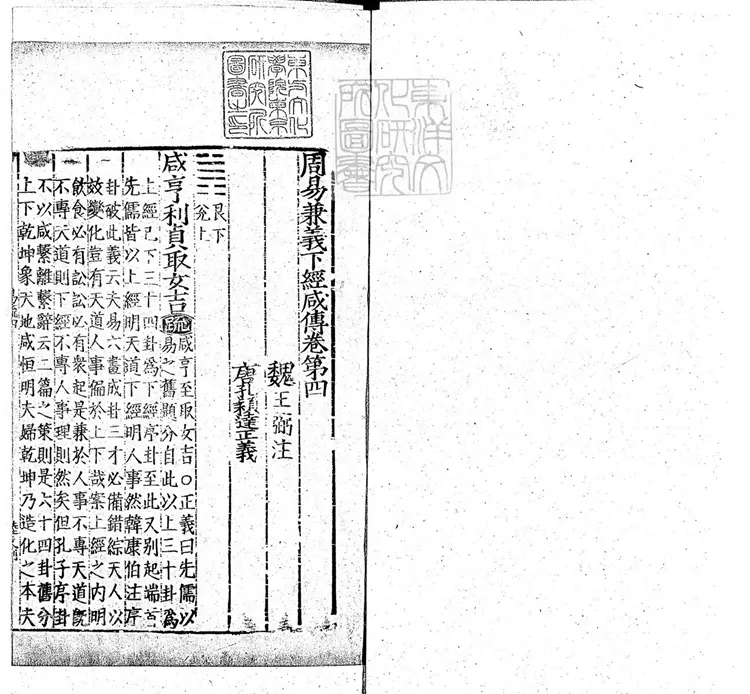 東方文化
學院東京
研究所
圖書之印
東洋文
化研究
所圖書
周易兼義下經咸傳卷第四
魏王弼注
唐孔穎達正義
艮下
兌上
咸亨利貞取女吉疏咸亨至取女吉○正義曰先儒以
易之舊題分自此以上三十卦為
上經已下三十四卦為下經序卦至此又別起端首
先儒皆以上經明天道下經明人事然韓康伯注序
卦破此義云夫易六畫成卦三才必備錯綜天人以
效變化豈有天道人事偏於上下哉案上經之內明
飲食必有訟訟必有衆起是兼於人事不專天道旣
不專天道則下經不專人事理則然矣但孔子序卦
不以咸繫離繫辭云二篇之策則是六十四卦舊分
上下乾坤象天地咸恒明夫婦乾坤乃造化之本夫